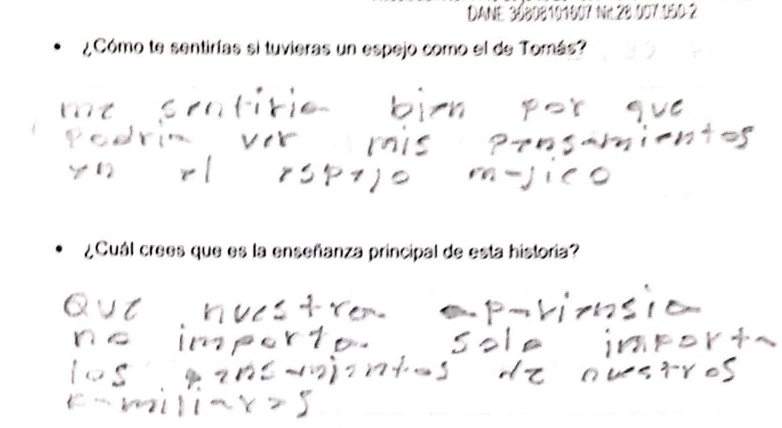 DANE 36808101607 Nit.28.007.050-2
• ¿Cómo te sentirías si tuvieras un espejo como el de Tomás?
me sentiria bien por que
podria ver mis pensamientos
en el espejo majico
• ¿Cuál crees que es la enseñanza principal de esta historia?
Que nuestra apariensia
no importa solo importa
los pensamientos de nuestros
familiares